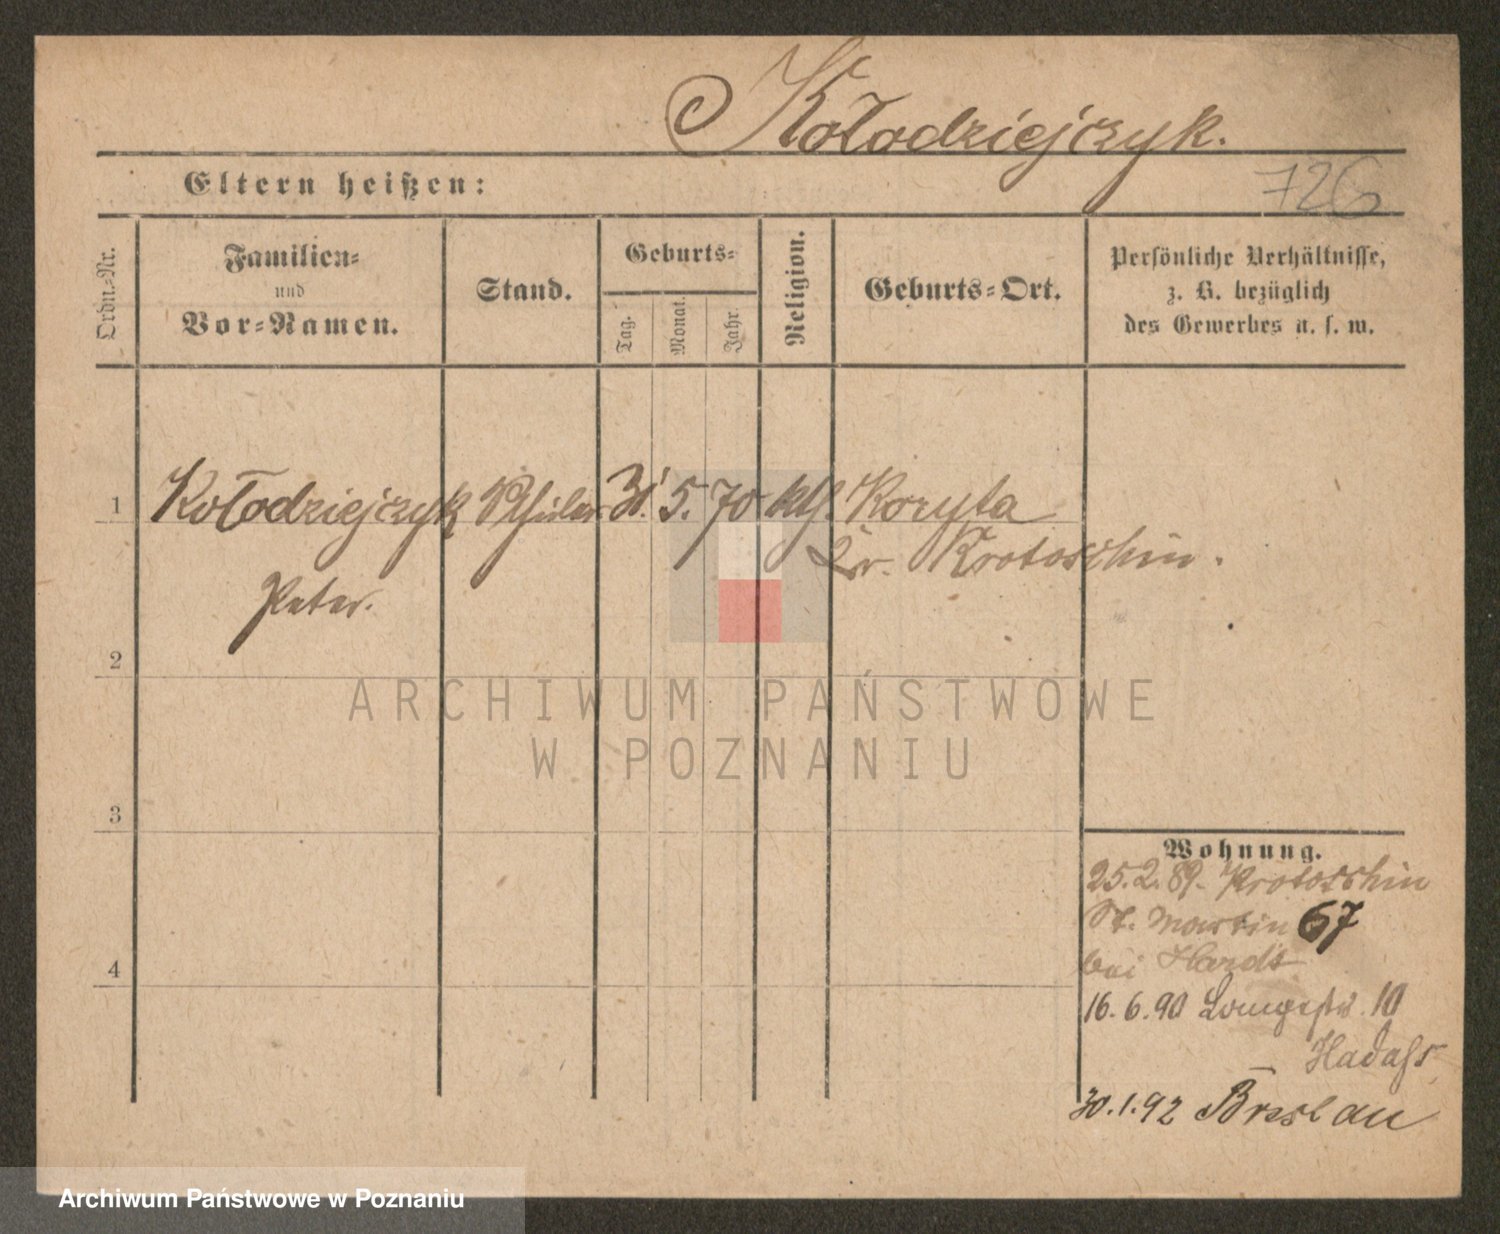 Kołodziejczyk.
Eltern heißen:
726
Ordn.-Nr.
Familien-
und
Vor-Namen.
Stand.
Geburts-
Tag.
Monat.
Jahr.
Religion.
Geburts-Ort.
Persönliche Verhältnisse,
z. B. bezüglich
des Gewerbes u. s. w.
1 Kołodziejczyk Schüler 31. 5. 70 kth. Kozyta
Kr. Krotoschin.
Peter.
2
3
4
ARCHIWUM PAŃSTWOWE
W POZNANIU
Wohnung.
25.2.89. Krotoschin
St. Martin 67
bei
16.6.90 Langestr. 10
30.1.92 Breslau
Archiwum Państwowe w Poznaniu